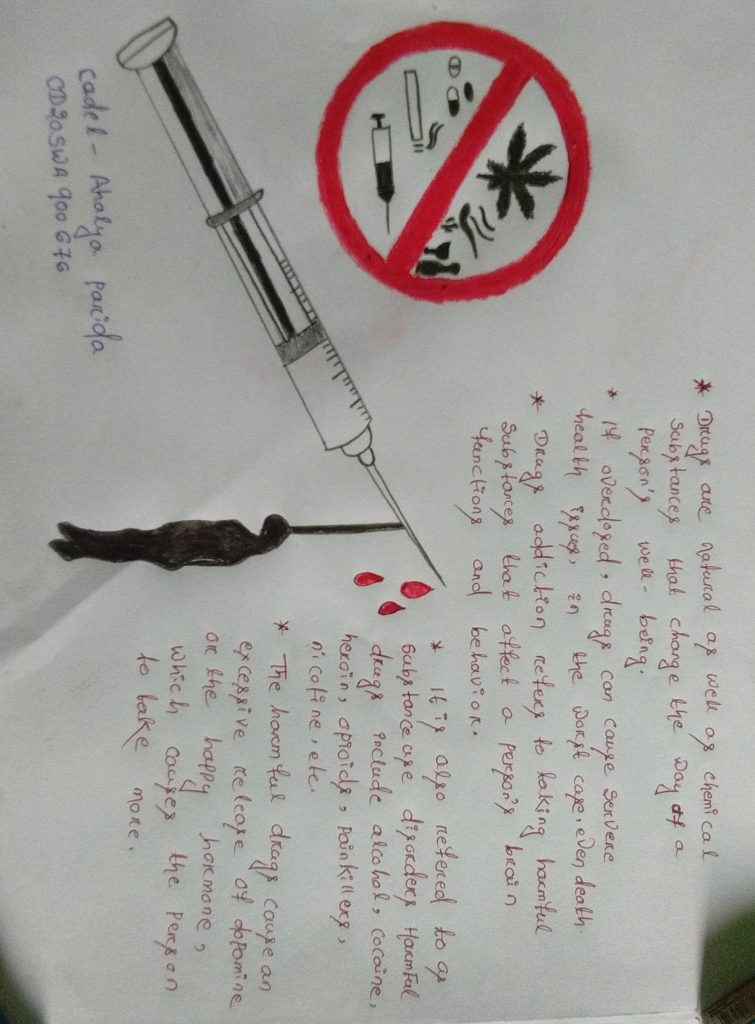 * Drugs are natural as well as chemical
substances that change the way of a
person's well-being.
* If overdosed, drugs can cause servere
health issues, in the worst case, even death.
* Drugs addiction refers to taking harmful
substances that affect a person's brain
functions and behavior.
* It is also refered to as
substance use disorders Harmful
drugs include alcohol, cocaine,
heroin, opioids, painkillers,
nicotine, etc.
* The harmful drugs cause an
excessive release of dopamine
or the happy hormone,
which causes the person
to take more.
Cadet - Ahalya parida
OD20SWA900676